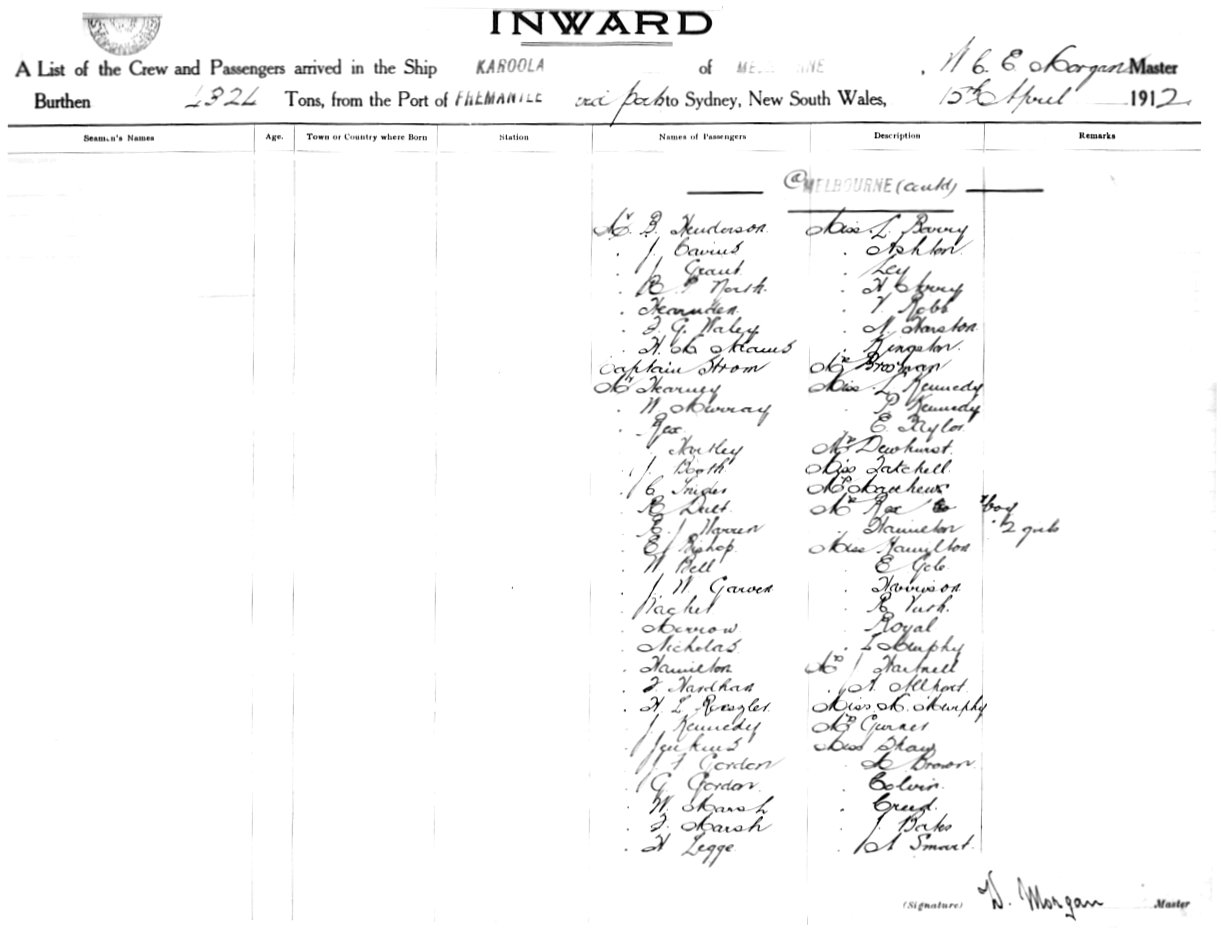 INWARD
A List of the Crew and Passengers arrived in the Ship KAROOLA of MELBOURNE, W. C. E. Morgan Master
Burthen Tons, from the Port of FREMANTLE via ports to Sydney, New South Wales, 15th April 1912
Seamen's Names Age. Town or Country where Born Station Names of Passengers Description Remarks
@ MELBOURNE (contd)
Mr B. Henderson Miss L. Barry
. J. . Ashton
. J. Grant . Ley
. R. P. North . H.
. . V. Robb
. F. G. Haley . N. Harston
. H. . Kingston
Captain Strom Mrs Brosman
Mr Kearney Miss L. Kennedy
. W. Murray . P. Kennedy
. Rex . E. Taylor
. Hartley Mrs Dewhurst
. J. Booth Miss Tatchell
. C. Snider Mrs Matthews
. R. Mrs Rex & boy
. E. J. Warren . Hamilton . 2 girls
. E. J. Bishop Miss Hamilton
. W. Bell . E.
. J. W. Garven . Harrison
. Rachel . R.
. Merrow . Royal
. Nicholas . L. Murphy
. Hamilton Mrs J. Hartnell
. F. . A. Allport
. H. L. Miss M. Murphy
. J. Kennedy Mrs Gurner
. Jenkins Miss Shaw
. J. F. Gordon . M. Brown
. G. Gordon . Colvin
. W. Marsh . Creed
. F. Marsh . J. Bates
. H. Legge . A. Smart
(Signature) W. Morgan Master